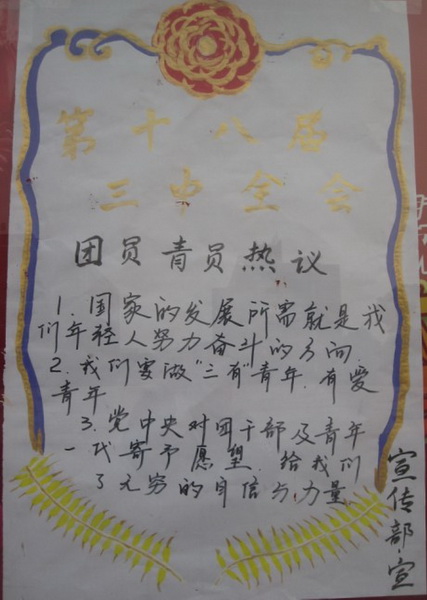 第十八届
三中全会
团员青员热议
1. 国家的发展所需就是我
们年轻人努力奋斗的方向.
2. 我们要做"三有"青年. 有爱
青年
3. 党中央对团干部及青年
一代寄予愿望. 给我们
了无穷的自信与力量
宣传部.宣